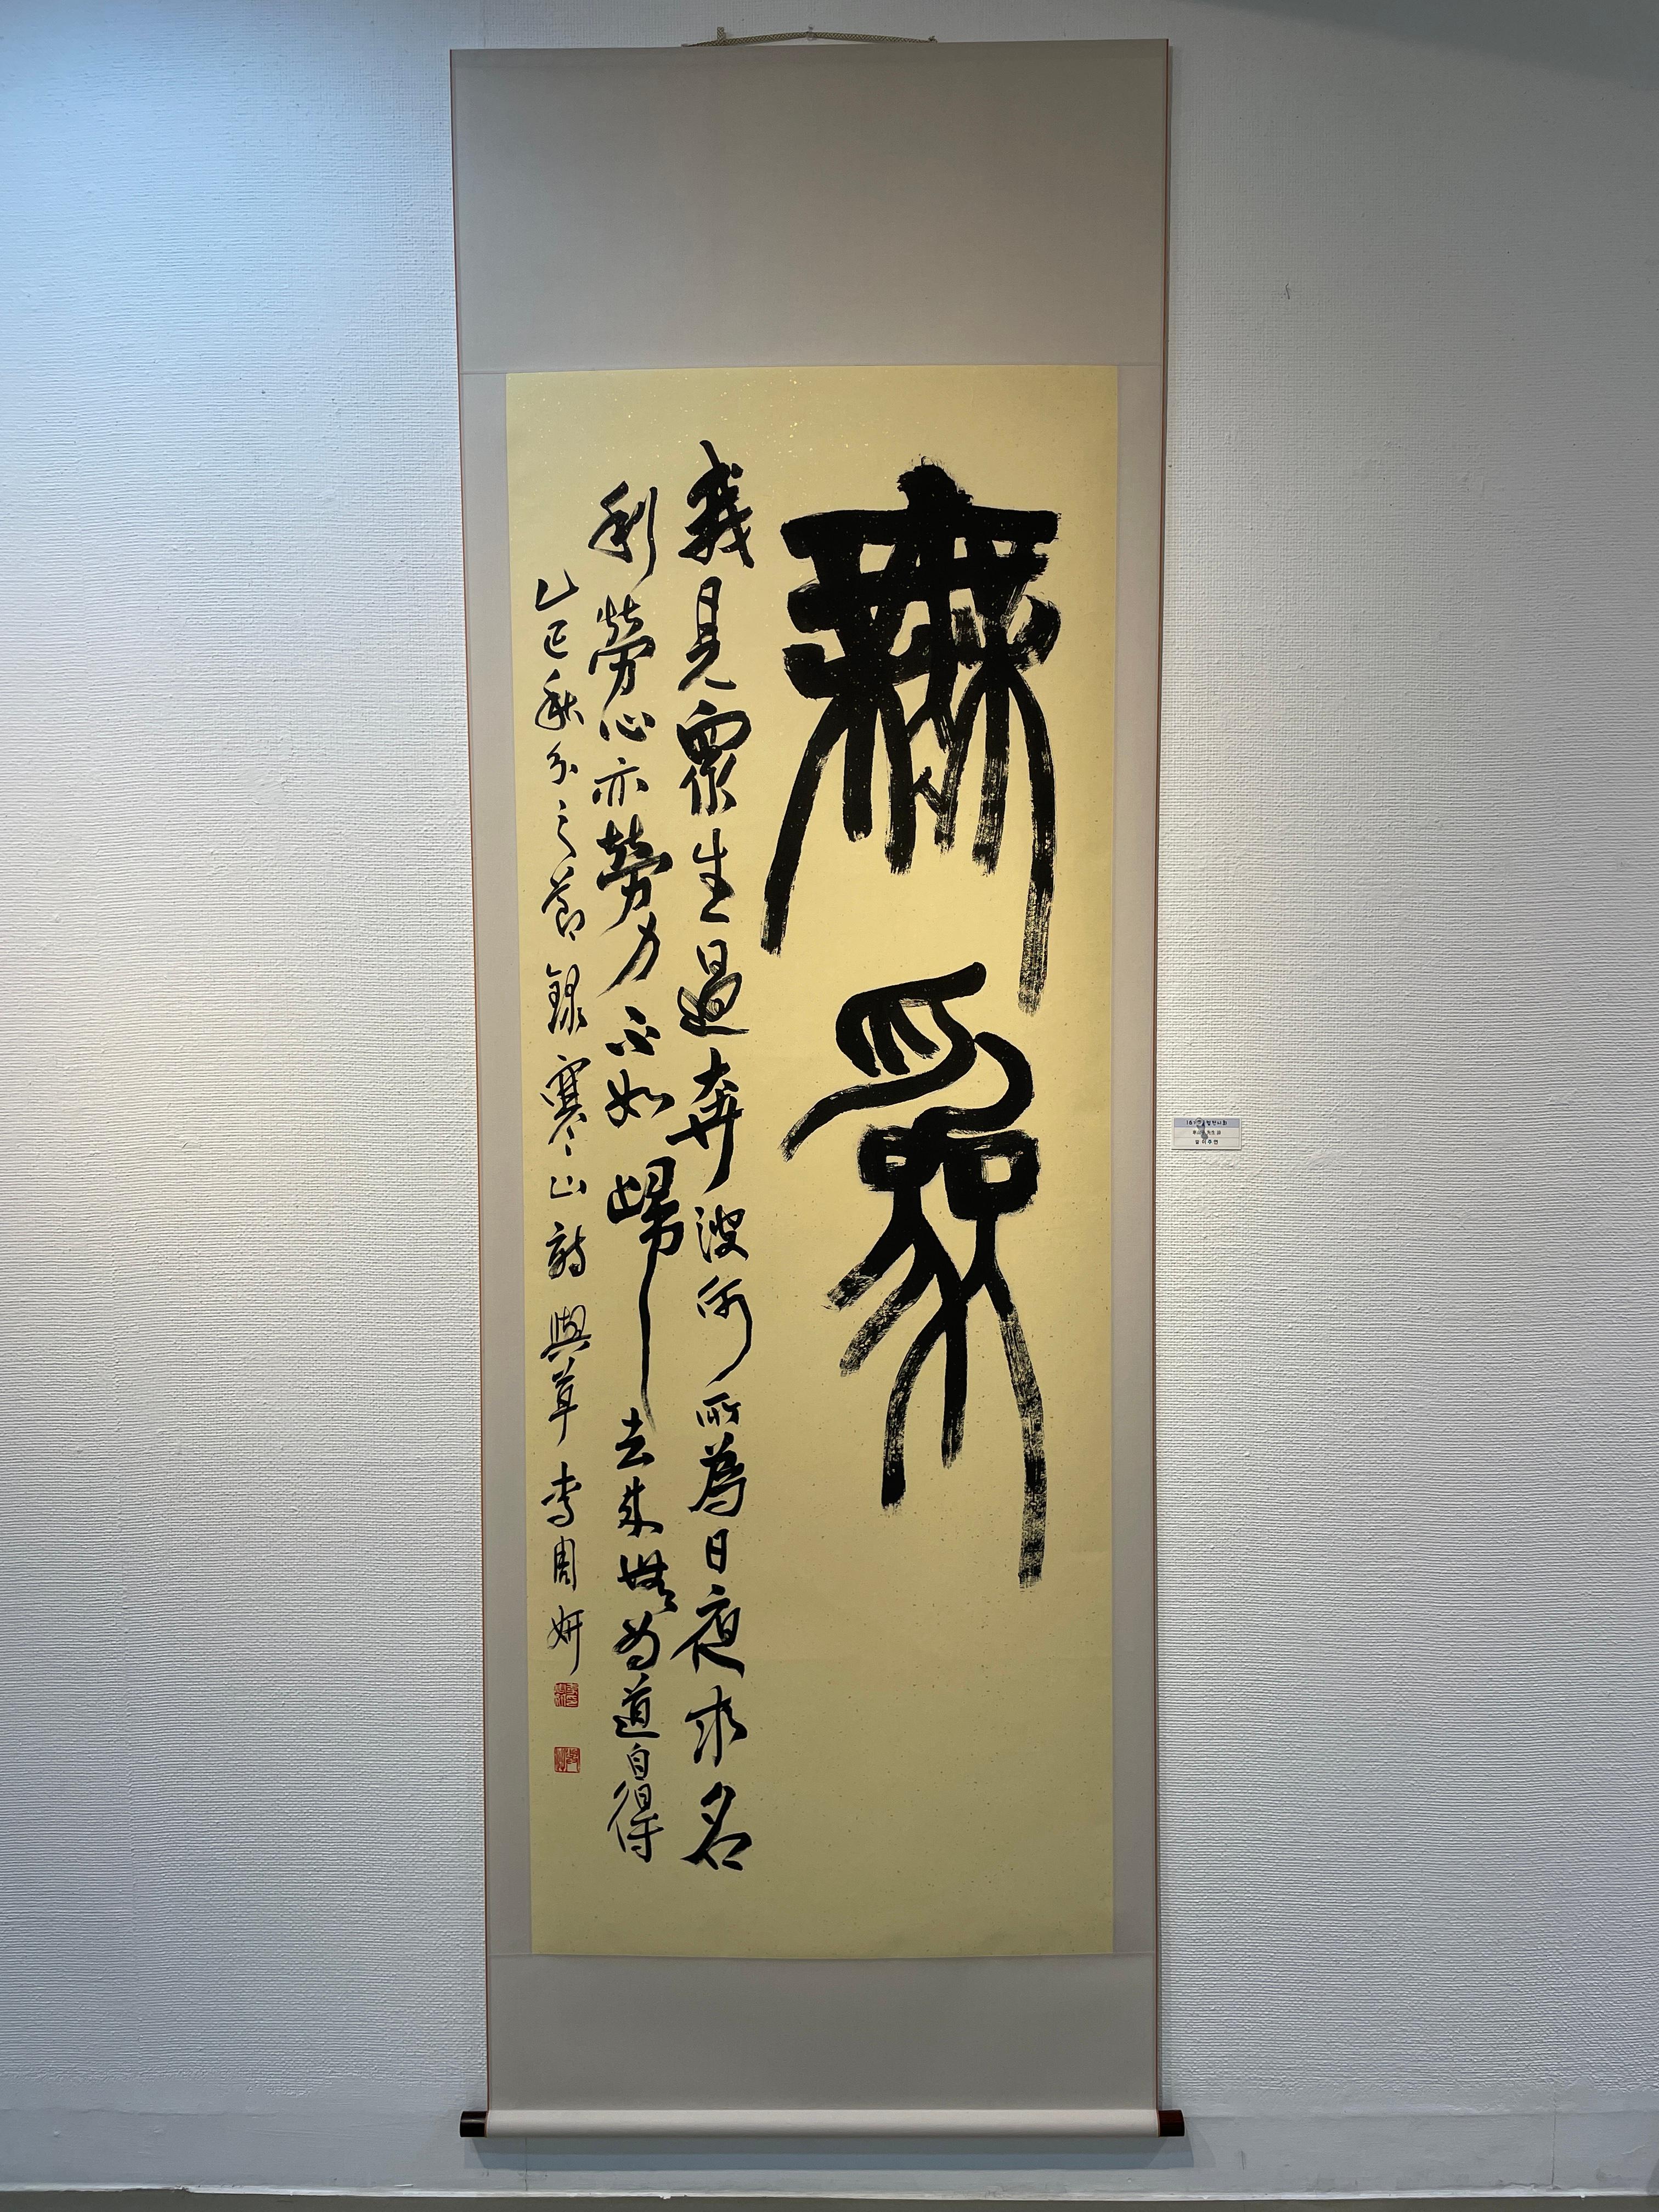 無爲
我見眾生過奔波何所爲日夜求名
利勞心亦勞力不如歸去来無為道自得
乙巳秋分之節錄寒山詩與草李周妍
이주연